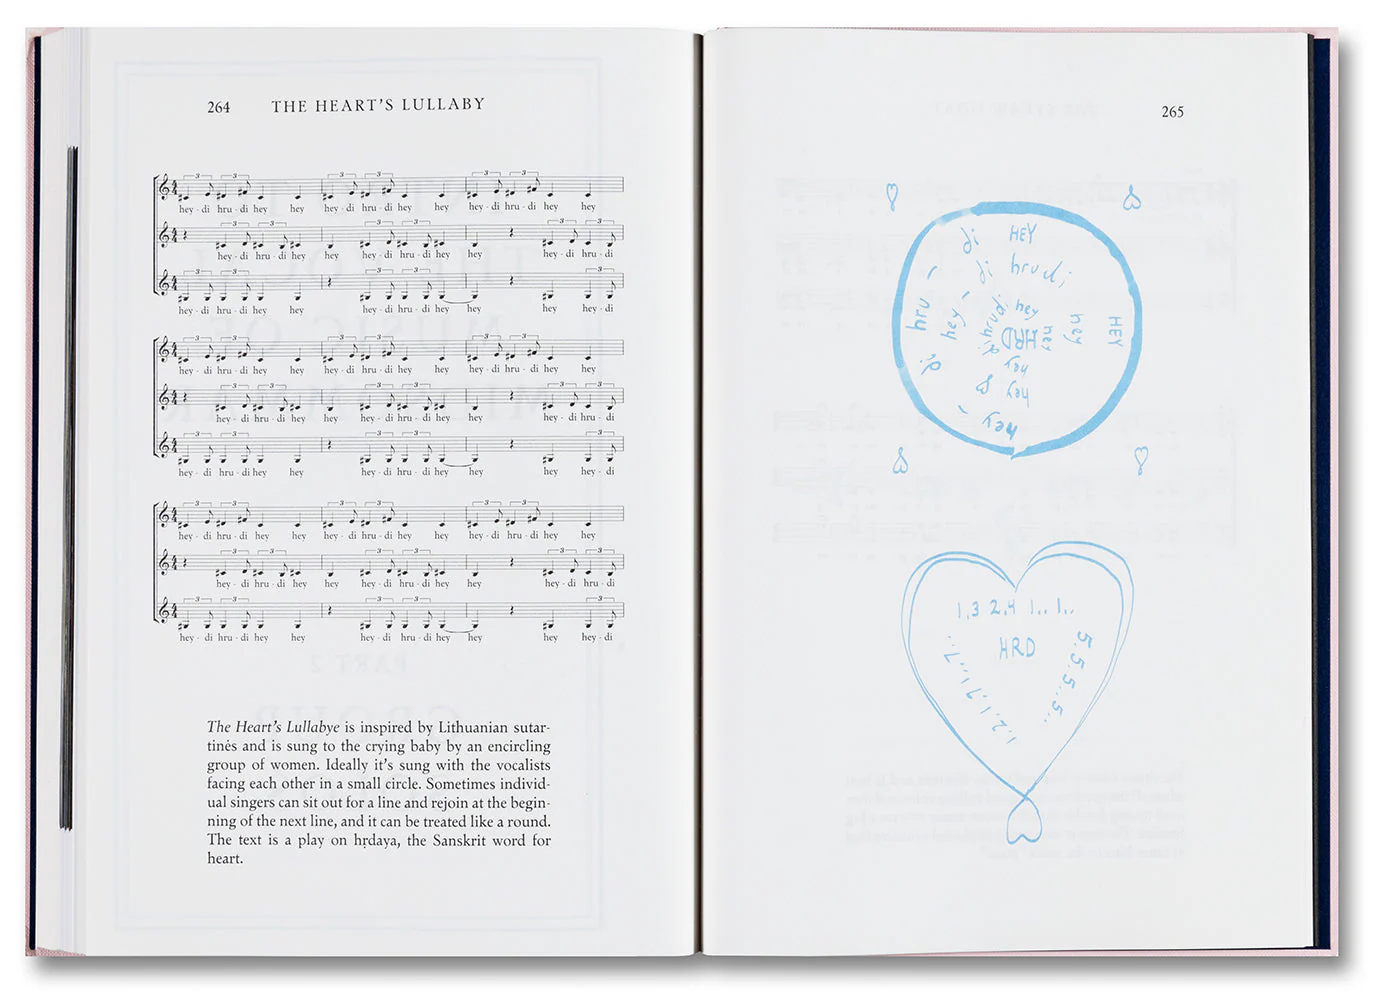 264 THE HEART'S LULLABY
3 3 3 3 3 3
hey - di hru - di hey hey hey - di hru - di hey hey hey - di hru - di hey hey
3 3 3 3 3 3
hey - di hru - di hey hey hey - di hru - di hey hey hey - di hru - di
3 3 3 3 3
hey - di hru - di hey hey hey - di hru - di hey hey hey hey - di
3 3 3 3 3 3
hey - di hru - di hey hey hey - di hru - di hey hey hey - di hru - di hey hey
3 3 3 3 3 3
hey - di hru - di hey hey hey - di hru - di hey hey hey - di hru - di
3 3 3 3 3
hey - di hru - di hey hey hey - di hru - di hey hey hey hey - di
3 3 3 3 3 3
hey - di hru - di hey hey hey - di hru - di hey hey hey - di hru - di hey hey
3 3 3 3 3 3
hey - di hru - di hey hey hey - di hru - di hey hey hey - di hru - di
3 3 3 3 3
hey - di hru - di hey hey hey - di hru - di hey hey hey hey - di
The Heart's Lullabye is inspired by Lithuanian sutar-
tinės and is sung to the crying baby by an encircling
group of women. Ideally it's sung with the vocalists
facing each other in a small circle. Sometimes individ-
ual singers can sit out for a line and rejoin at the begin-
ning of the next line, and it can be treated like a round.
The text is a play on hṛdaya, the Sanskrit word for
heart.
265
hey - di hru - di HEY HEY
hey - di hrudi hey hey
hrudi hey hey hey
HRD
1,3 2,4 1.. 1..
HRD
5,5,5,5..5..
1,2,1,7 1,.7..